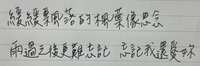 緩緩飄落的楓葉像思念
雨過之後更難忘記 忘記我還愛妳